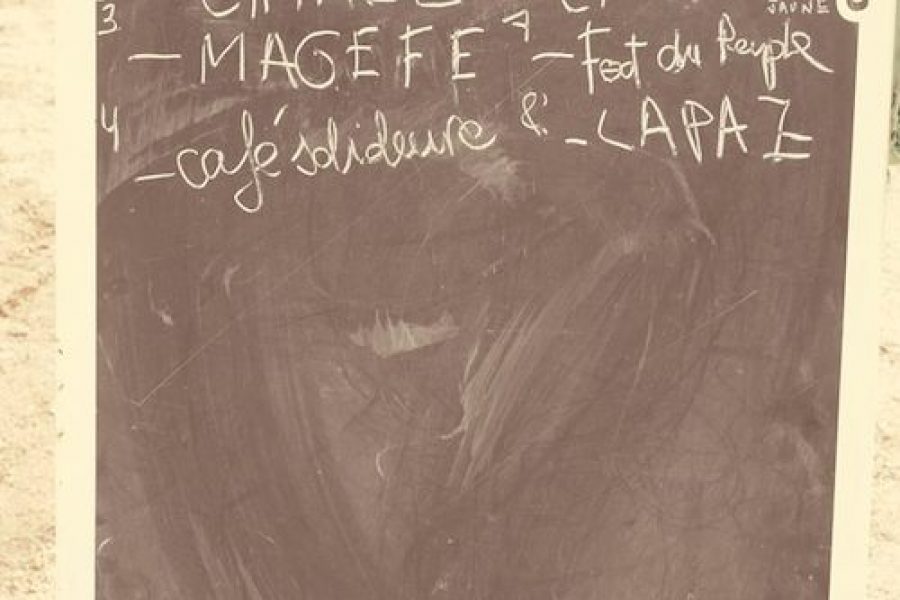 JAUNE
3 - MAGEFE 7 - Foot du Peuple
4 - café solidaire 8 - LAPAZ